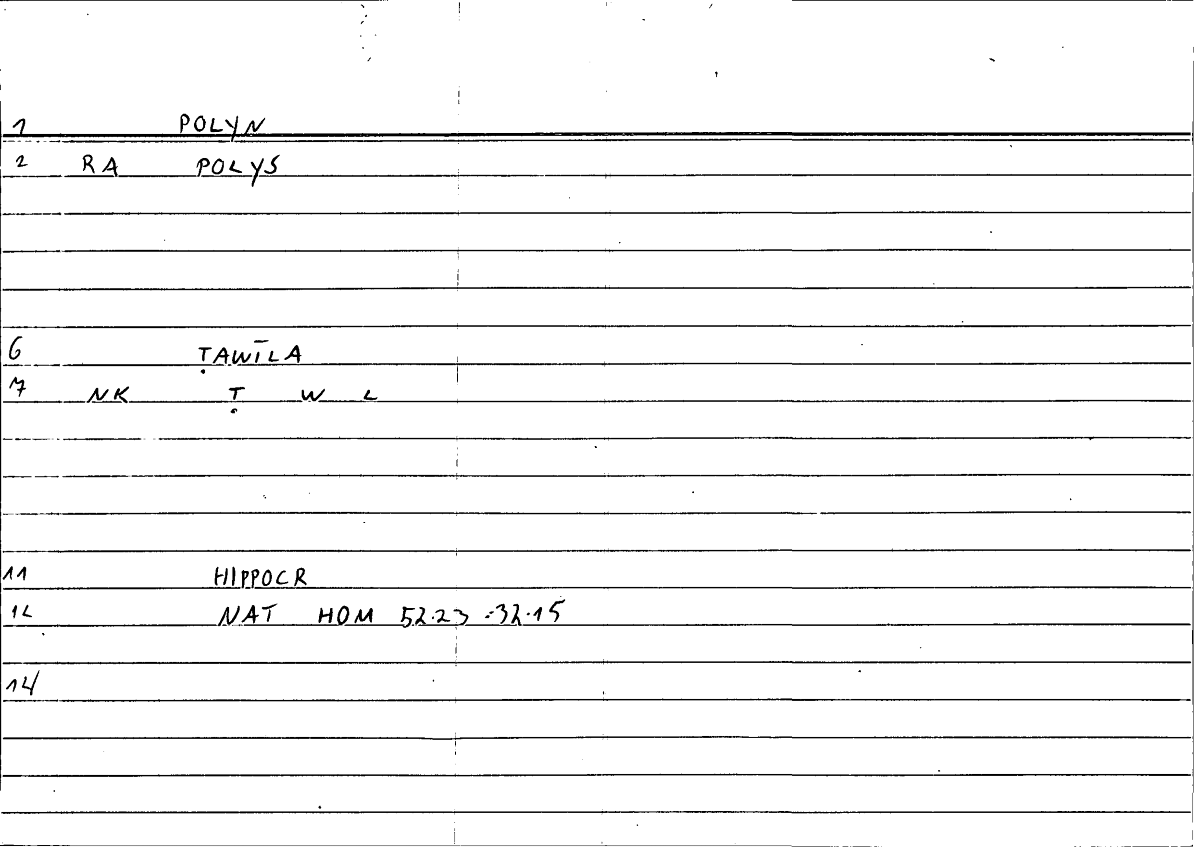 1 POLYN
2 RA POLYS
6 ṬAWĪLA
7 NK Ṭ W L
11 HIPPOCR
12 NAT HOM 52.23 :32.15
14